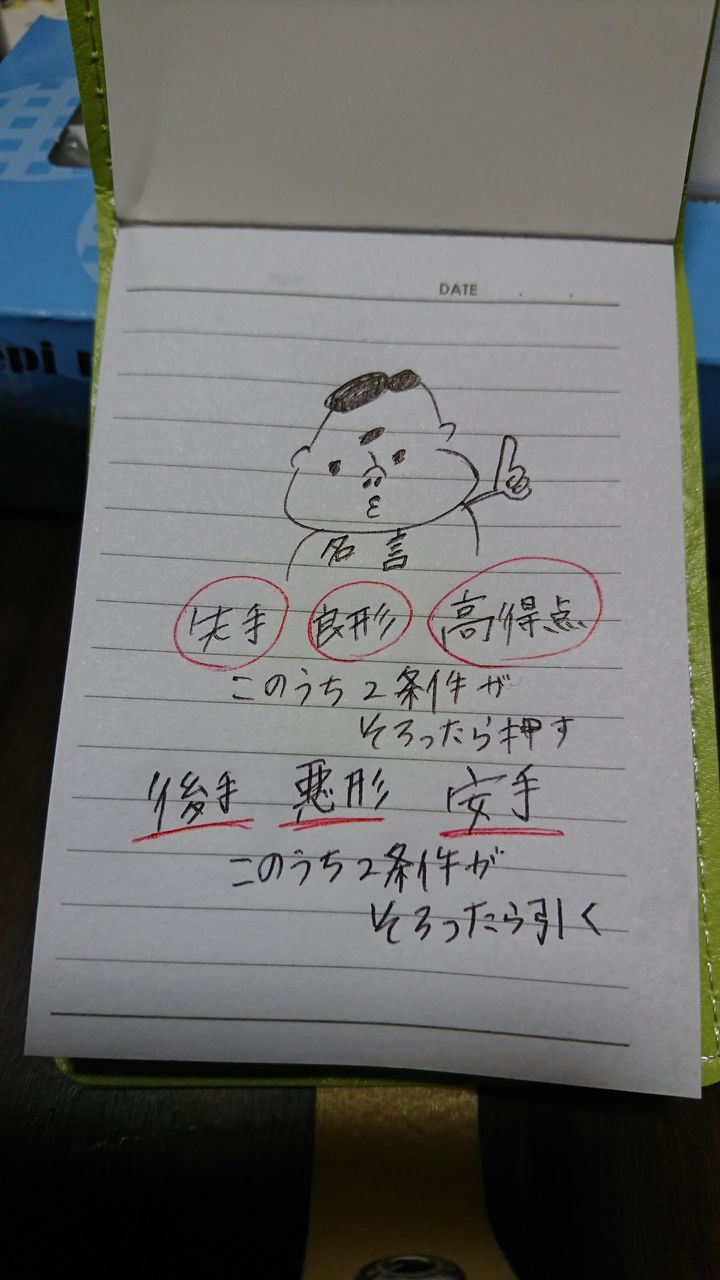 DATE . .
名言
先手 良形 高得点
このうち2条件が
そろったら押す
後手 悪形 安手
このうち2条件が
そろったら引く